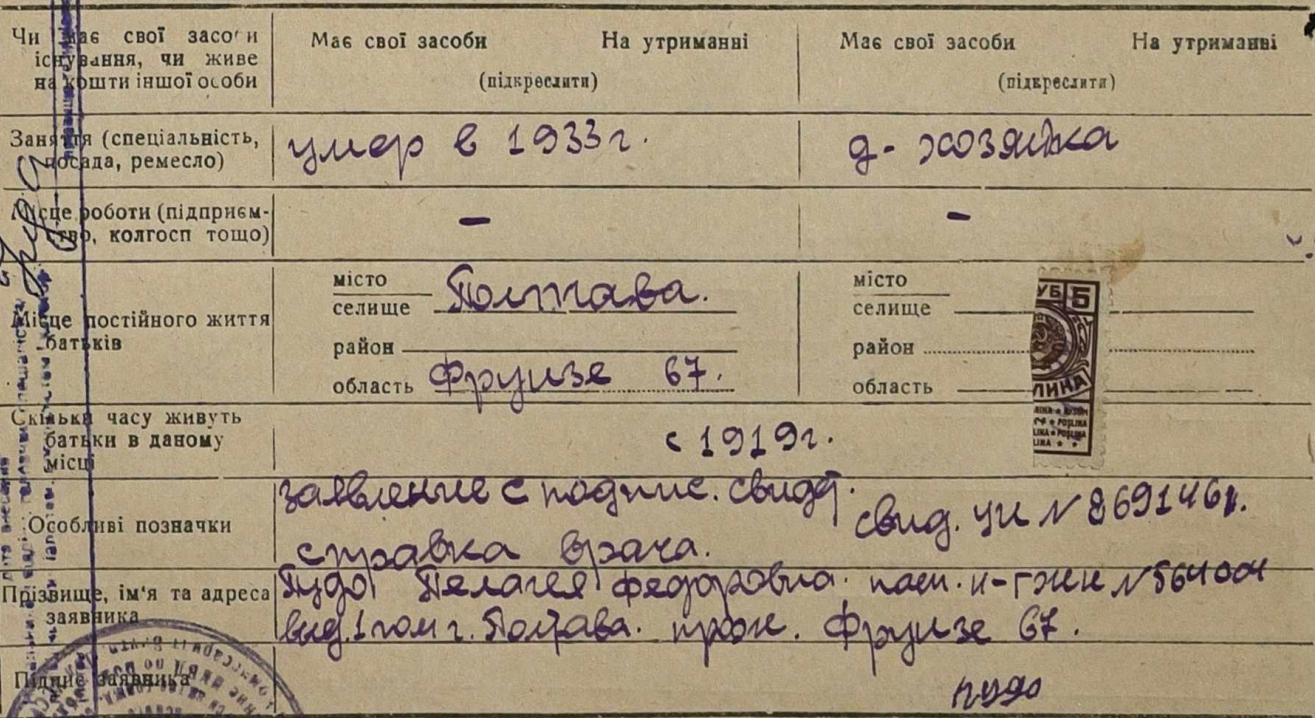 Чи має свої засоби
існування, чи живе
на кошти іншої особи
Має свої засоби На утриманні
(підкреслити)
Має свої засоби На утриманні
(підкреслити)
Заняття (спеціальність,
посада, ремесло)
умер в 1933 г.
д-хозяйка
Місце роботи (підприєм-
ство, колгосп тощо)
–
–
Місце постійного життя
батьків
місто
селище Полтава.
район
область Фрунзе 67.
місто
селище
район
область
УБ 5
ЛИНА
Скільки часу живуть
батьки в даному
місці
с 1919 г.
Особливі позначки
заявление с подпис. свидет.
справка врача.
свид. № 869146
Прізвище, ім'я та адреса
заявника
Пудо Пелагея Федоровна. № 564004
выд. 1 гом г. Полтава. прож. Фрунзе 67.
Підпис заявника
Пудо